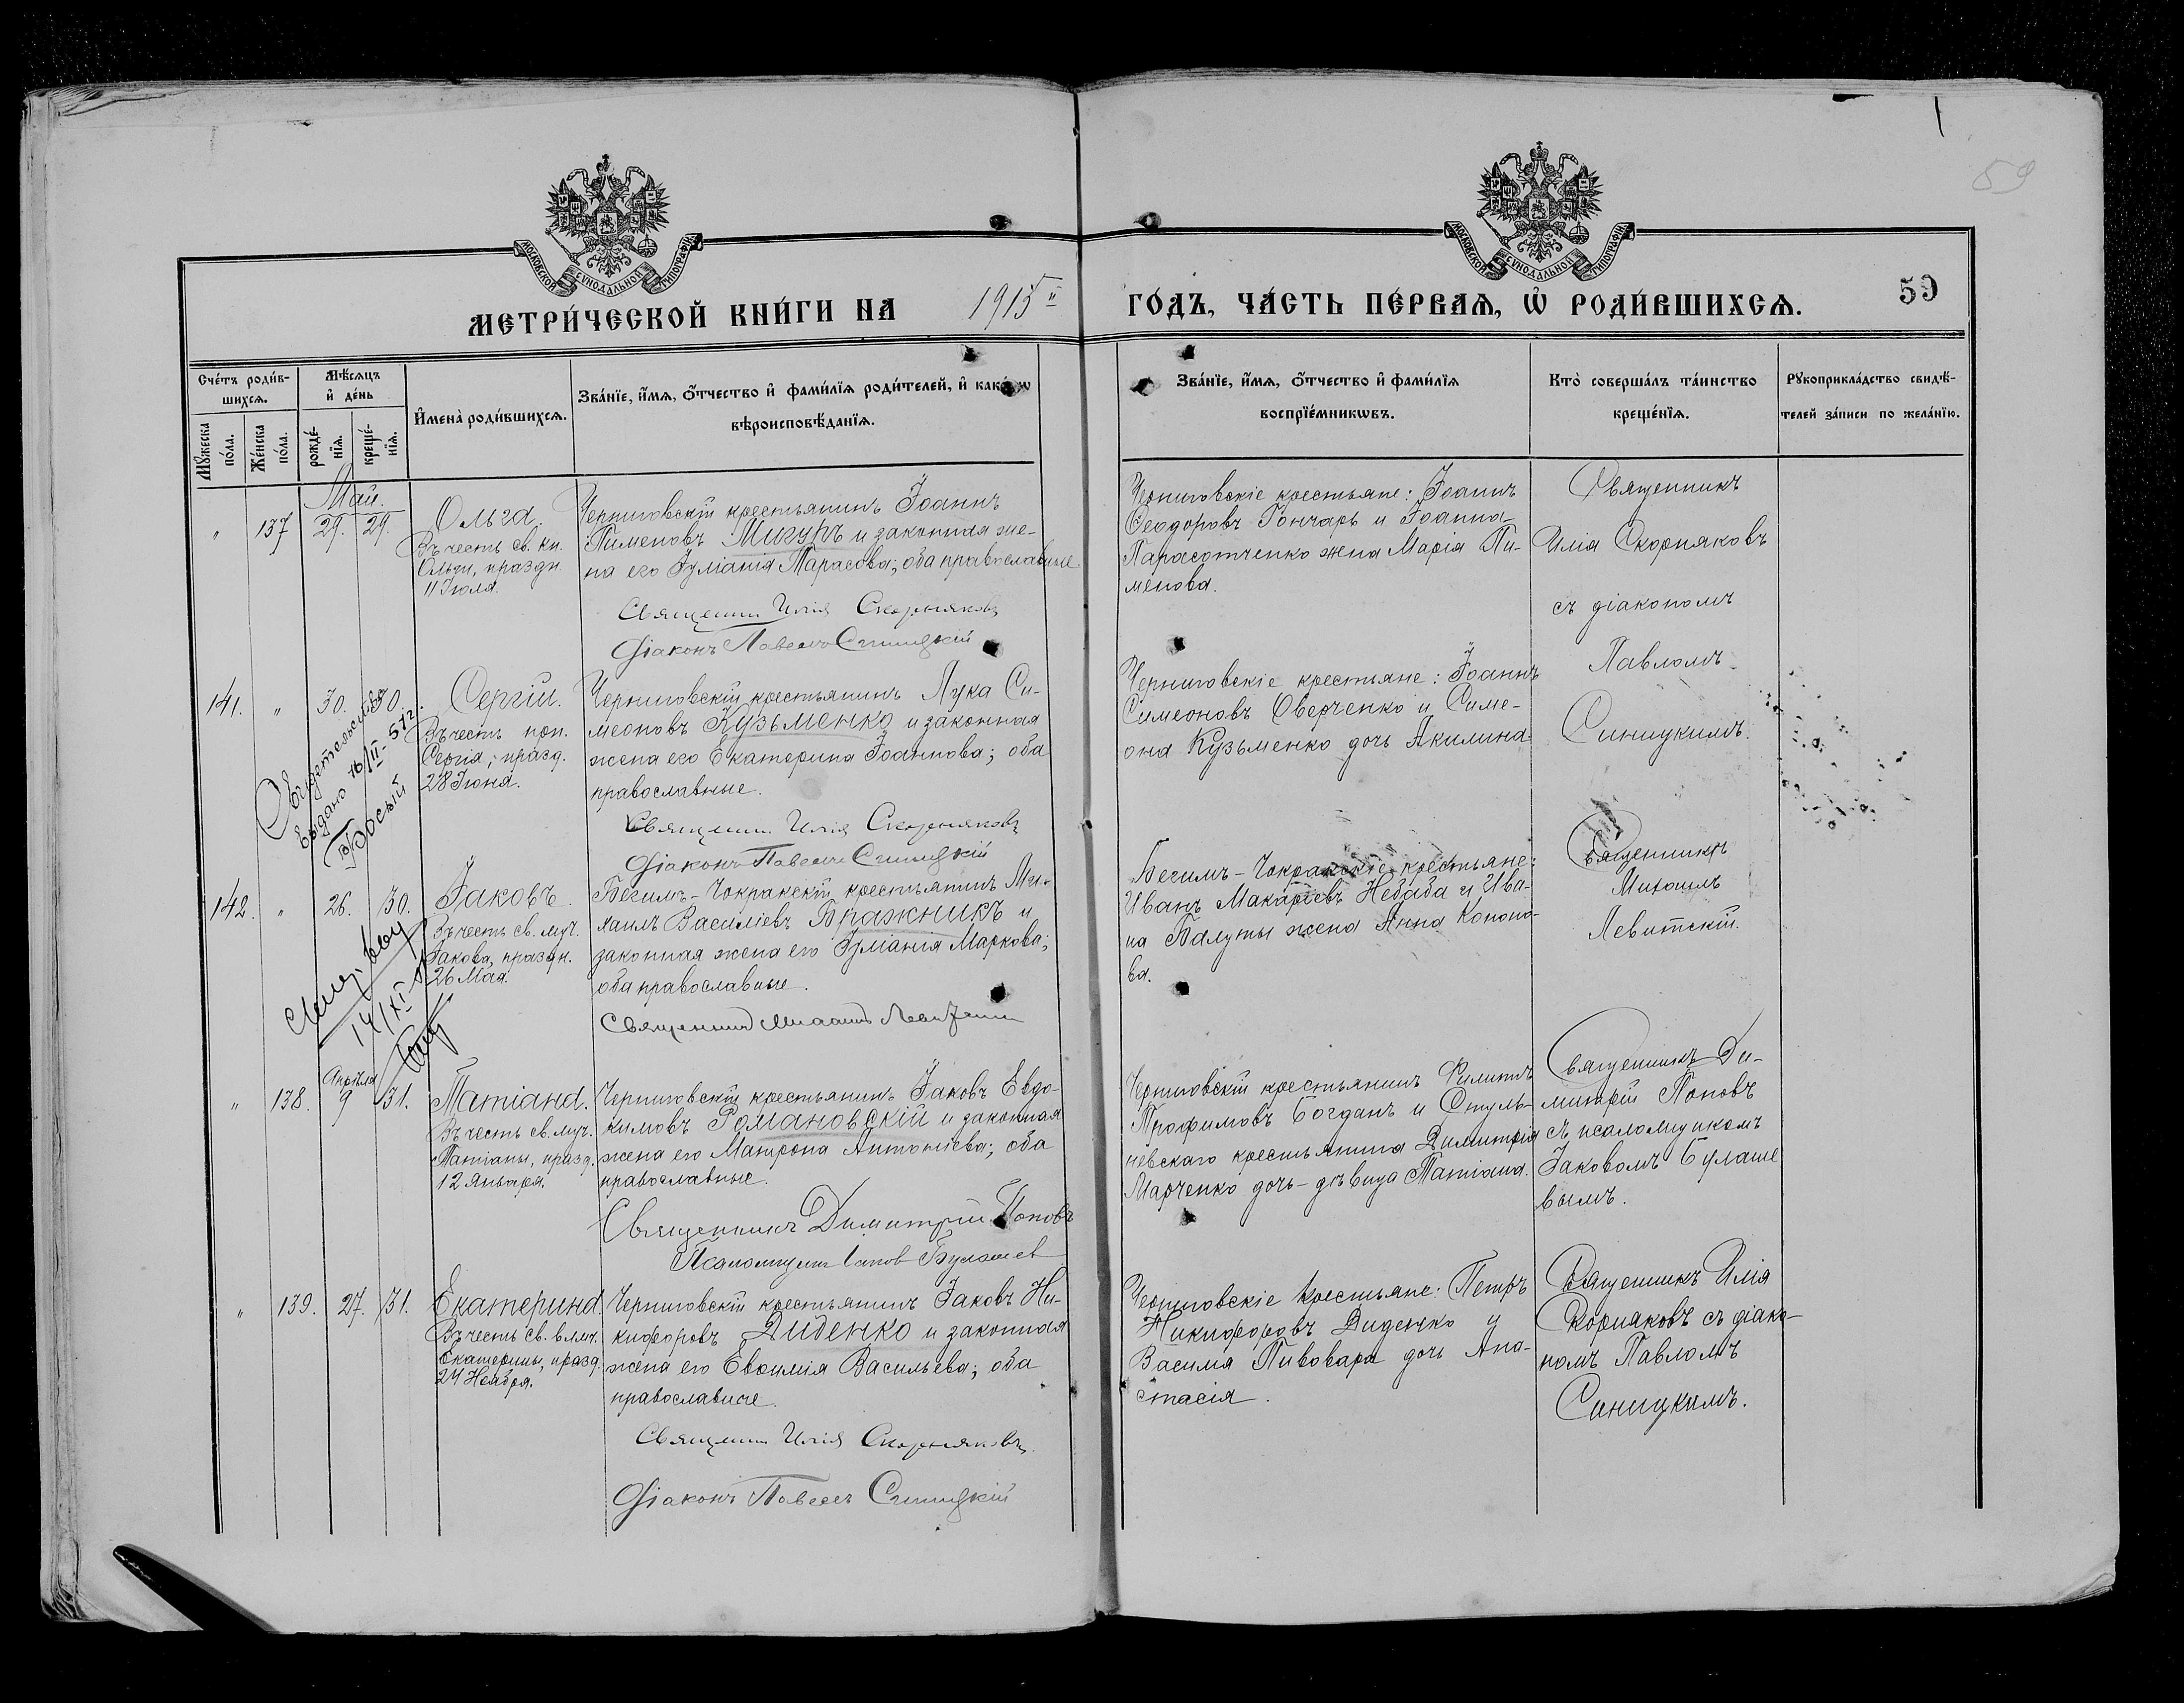 59
МОСКОВСКОЙ СУНОДАЛЬНОЙ ТИПОГРАФІИ
МОСКОВСКОЙ СУНОДАЛЬНОЙ ТИПОГРАФІИ
МЕТРИ́ЧЕСКОЙ КНИ́ГИ НА 1915й ГО́ДЪ, ЧА́СТЬ ПЕ́РВАѦ, Ѿ РОДИ́ВШИХСѦ. 59
Сче́тъ роди́в-
шихсѧ.
Мꙋ́жеска
по́ла.
Же́нска
по́ла.
Мѣ́сѧцъ
и҆ де́нь
рожде́-
нїѧ.
креще́-
нїѧ.
И҆мена̀ роди́вшихсѧ.
Зва́нїе, и҆́мѧ, ѻ҆́тчество и҆ фами́лїѧ роди́телей, и҆ како́гѡ
вѣроисповѣ́данїѧ.
Зва́нїе, и҆́мѧ, ѻ҆́тчество и҆ фами́лїѧ
воспрїе́мникѡвъ.
Кто̀ соверша́лъ та́инство
креще́нїѧ.
Рꙋкоприкла́дство свидѣ́-
телей за́писи по жела́нїю.
Май.
" 137 29. 29.
Ольга.
Въ честь св. кн.
Ольги, праздн.
11 Іюля.
Черниговскій крестьянинъ Іоаннъ
Пименовъ Мигуръ и законная же-
на его Іуліанія Тарасова; оба православные.
Священник Илія Скорняковъ
Діаконъ Павелъ Синицкій
Черниговскіе крестьяне: Іоаннъ
Ѳеодоровъ Гончаръ и Іоанна
Парасотченко жена Марія Пи-
менова.
Священникъ
Илія Скорняковъ
съ діакономъ
Павломъ
Синицкимъ.
141. " 30. 30.
Сергій.
Въ честь преп.
Сергія, празд.
28 Іюня.
Свидетельство
выдано 16/III-51г.
Черниговскій крестьянинъ Лука Си-
меоновъ Кузьменко и законная
жена его Екатерина Іоаннова; оба
православные.
Священник Илія Скорняковъ
Діаконъ Павелъ Синицкій
Черниговскіе крестьяне: Іоаннъ
Симеоновъ Оверченко и Симе-
она Кузьменко дочь Акилина.
142. " 26. 30.
Іаковъ.
Въ честь св. муч.
Іакова, праздн.
26 Мая.
14/XI
Бегимъ-Чокракскій крестьянинъ Ми-
хаилъ Василіевъ Бражникъ и
законная жена его Іуліанія Маркова;
оба православные.
Священникъ Михаилъ Левитскій
Бегимъ-Чокракскіе крестьяне:
Иванъ Макаріевъ Небаба и Ива-
на Балуты жена АннаКонона-
ва.
Священникъ
Михаилъ
Левитскій.
" 138. Апрѣля 9 31.
Татіана.
Въ честь св. муч.
Татіаны, празд.
12 Января.
Черниговскій крестьянинъ Іаковъ Евдо-
кимовъ Романовскій и законная
жена его Матрона Антоніева; оба
православные.
Священникъ Димитрій Поповъ
Псаломщикъ Іаков Булашев
Черниговскій крестьянинъ Филиппъ
Трофимовъ Богданъ и Стуль-
невскаго крестьянина Димитрія
Марченко дочь-дѣвица Татіана.
Священникъ Ди-
митрій Поповъ
съ псаломщикомъ
Іаковомъ Булаше
вымъ.
" 139. 27. 31.
Екатерина.
Въ честь св. влмч.
Екатерины, празд.
24 Ноября.
Черниговскій крестьянинъ Іаковъ Ни-
кифоровъ Диденко и законная
жена его Евѳимія Васильева; оба
православные.
Священник Илія Скорняковъ
Діаконъ Павелъ Синицкій
Черниговскіе крестьяне: Петръ
Никифоровъ Диденко и
Василія Пивовара дочь Ана-
стасія.
Священникъ Илія
Скорняковъ съ діако-
номъ Павломъ
Синицкимъ.